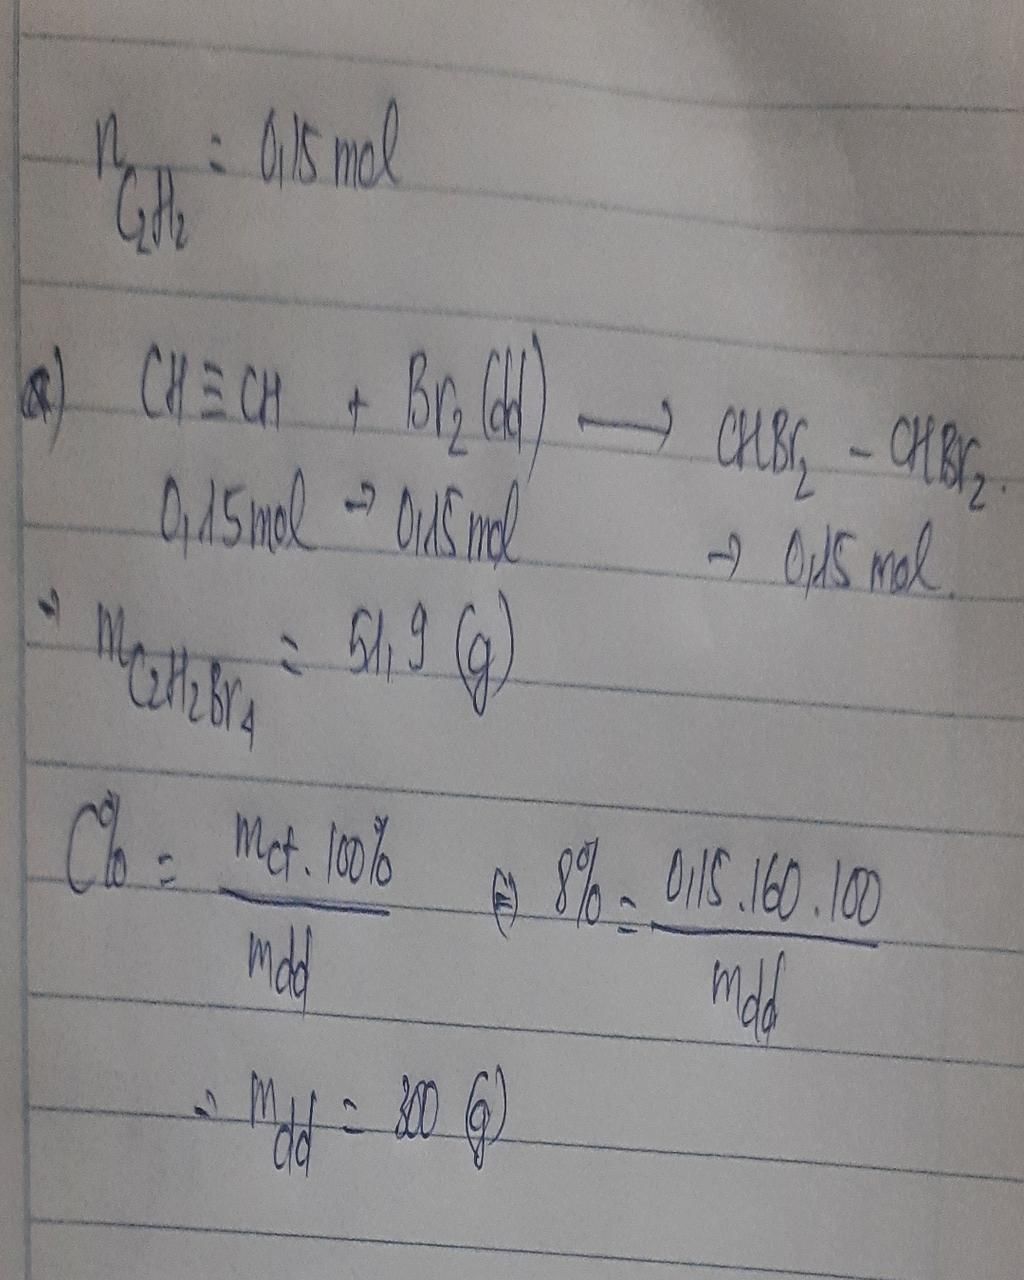 n C₂H₂ = 0,15 mol
a) CH ≡ CH + Br₂ (dd) ⟶ CHBr₂ – CHBr₂.
0,15 mol → 0,15 mol → 0,15 mol.
→ m C₂H₂Br₄ = 51,9 (g)
C% = mct. 100% / mdd ⇔ 8% = 0,15 . 160 . 100 / mdd
→ mdd = 300 (g)